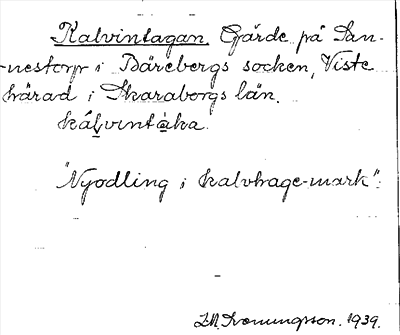 Kalvintagan. Gärde på San-
nestorp i Bärebergs socken, Viste
härad i Skaraborgs län.
kálvintàka.
"Nyodling i kalvhage-mark".
1939.